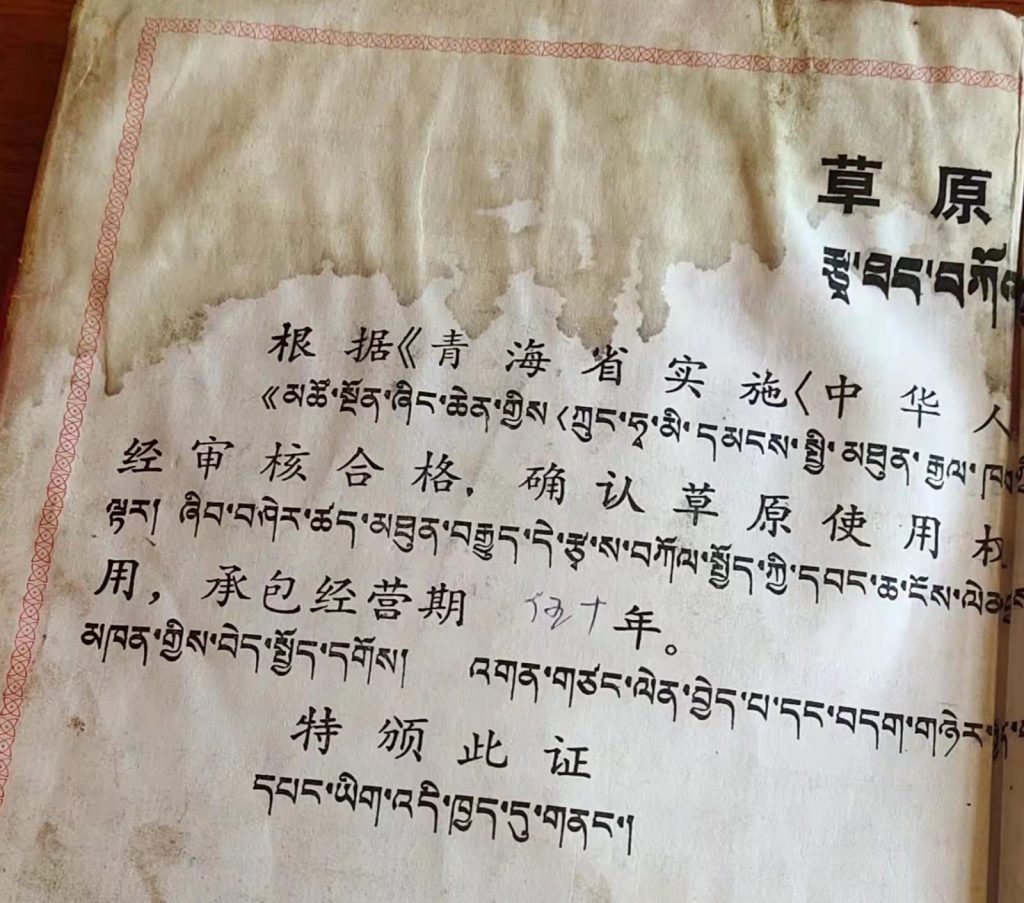 草原
རྩྭ་ཐང་བཀོལ
根据《青海省实施〈中华人
《མཚོ་སྔོན་ཞིང་ཆེན་གྱིས〈ཀྲུང་ཧྭ་མི་དམངས་སྤྱི་མཐུན་རྒྱལ་ཁབ་
经审核合格，确认草原使用权
ལྟར། ཞིབ་བཤེར་ཚད་མཐུན་བརྒྱུད་དེ་རྩྭ་ས་བཀོལ་སྤྱོད་ཀྱི་དབང་ཆ་ངོས་ལེན་
用，承包经营期 伍十年。
མཁན་གྱིས་བེད་སྤྱོད་དགོས། འགན་གཙང་ལེན་བྱེད་པ་དང་བདག་གཉེར་
特颁此证
དཔང་ཡིག་འདི་ཁྱད་དུ་གནང་།